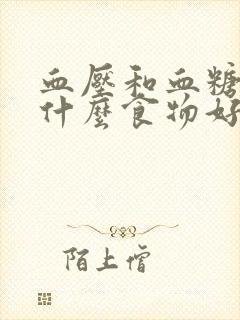 血壓和血糖
什麼食物好
陌上僧